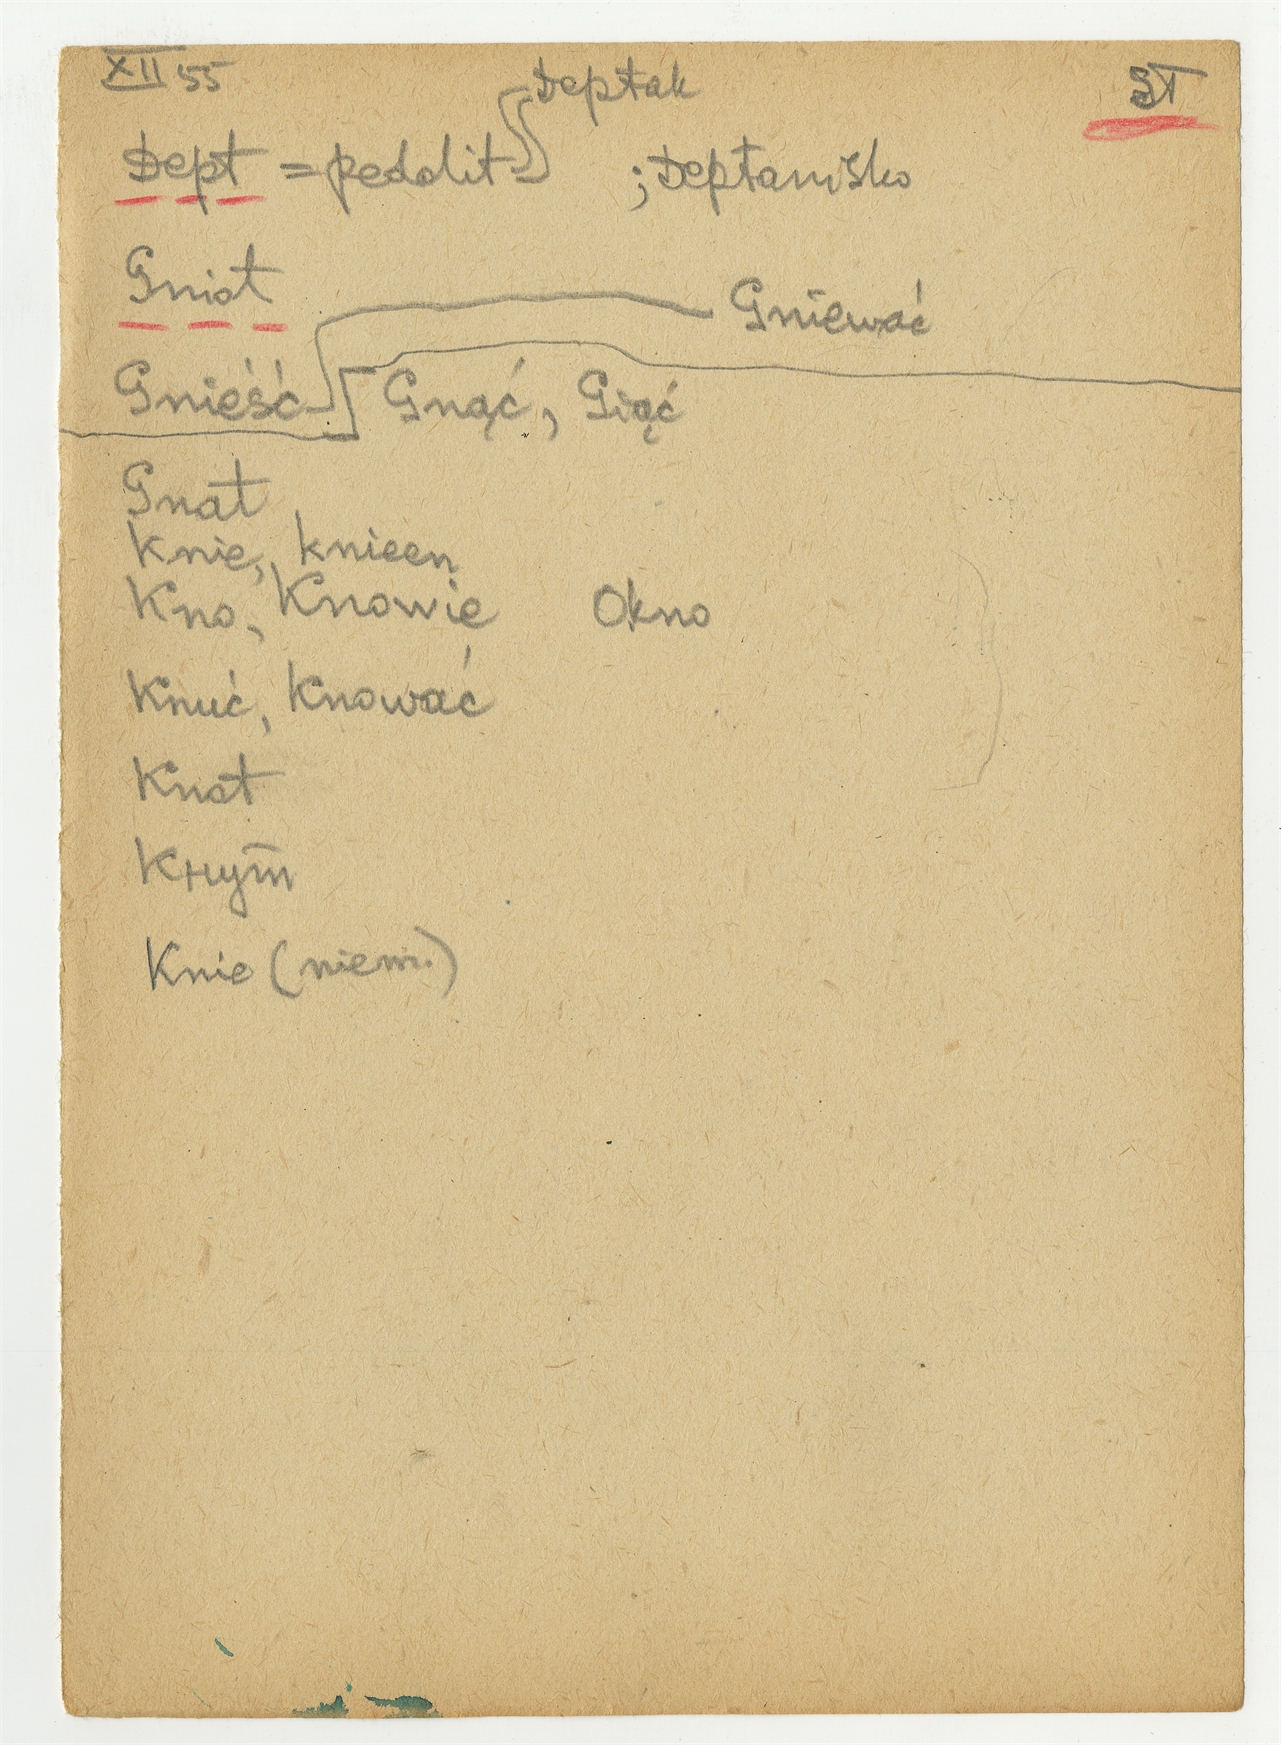 XII 55 Deptak ST
Dept = pedolit ; Deptanisko
Gniot
Gniewać
Gnieść Gnąć, Giąć
Gnat
Knie, knieen
Kno, Knowie Okno
Knuć, Knować
Knot
Кнут
Knie (niem.)